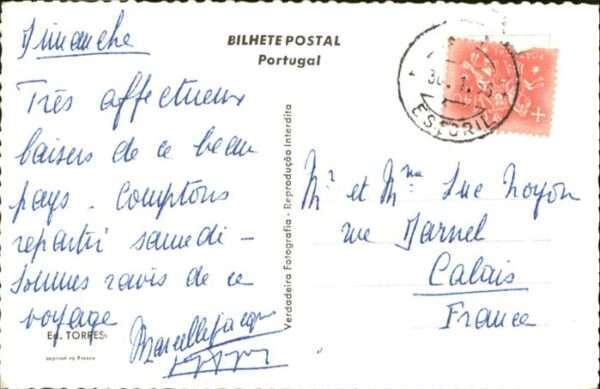 Dimanche
Très affectueux
baisers de ce beau
pays. Comptons
repartir samedi -
Sommes ravis de ce
voyage
Marcelle Jacques
Ed. TORRES
BILHETE POSTAL
Portugal
Verdadeira Fotografia - Reprodução Interdita
ESTORIL
Mr et Mme Luc Noyon
rue Darnel
Calais
France